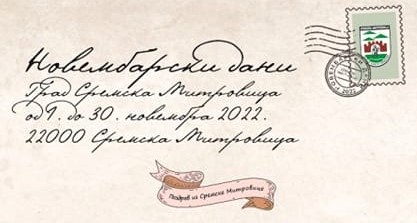 Новембарски дани
Град Сремска Митровица
од 9. до 30. новембра 2022.
22000 Сремска Митровица
Поздрав из Сремске Митровице
2022